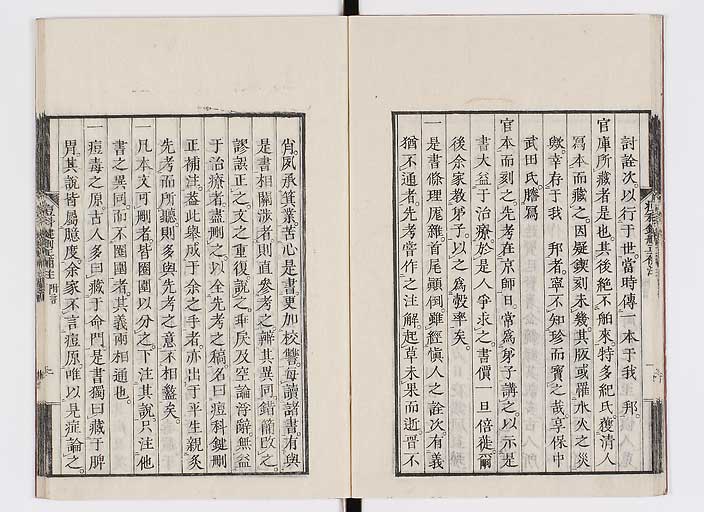 討詮次以行于世。當時傳一本于我 邦。
官庫所藏者是也。其後絶不舶來。特多紀氏。獲清人
寫本而藏之。因疑鍥刻未幾。其版或罹水火之災
歟。幸存于我 邦者。寧不知珍而寶之哉。享保中
武田氏謄寫
官本而刻之。先考在京師日。常為弟子講之。以示是
書大益于治療。於是人爭求之。書價一旦倍蓰。爾
後余家教弟子。以之為彀率矣。
一是書條理厖雜。首尾顛倒。雖經愼人之詮次。有義
猶不通者。先考嘗作之注解。起草未果而逝。晋不
肖。夙承箕業。苦心是書。更加校讐。每讀諸書。有與
是書相關涉者。則直參考之。辨其異同。錯簡改之。
謬誤正之。文之重複。說之乖戾。及空論滑辭。無益
于治療者。盡刪之。以全先考之稿。名曰痘科鍵刪
正補注。蓋此擧成于余之手者。亦出于平生親炙
先考而所聽。則多與先考之意不相盭矣。
一凡本文可刪者。皆圈圍以分之。下注其說。只注他
書之異同。而不圈圍者。其義兩相通也。
一痘毒之原。古人多曰藏于命門。是書獨曰藏于脾
胃。其說皆屬臆度。余家不言痘原。唯以見症論之。
痘科鍵刪正補注 附言